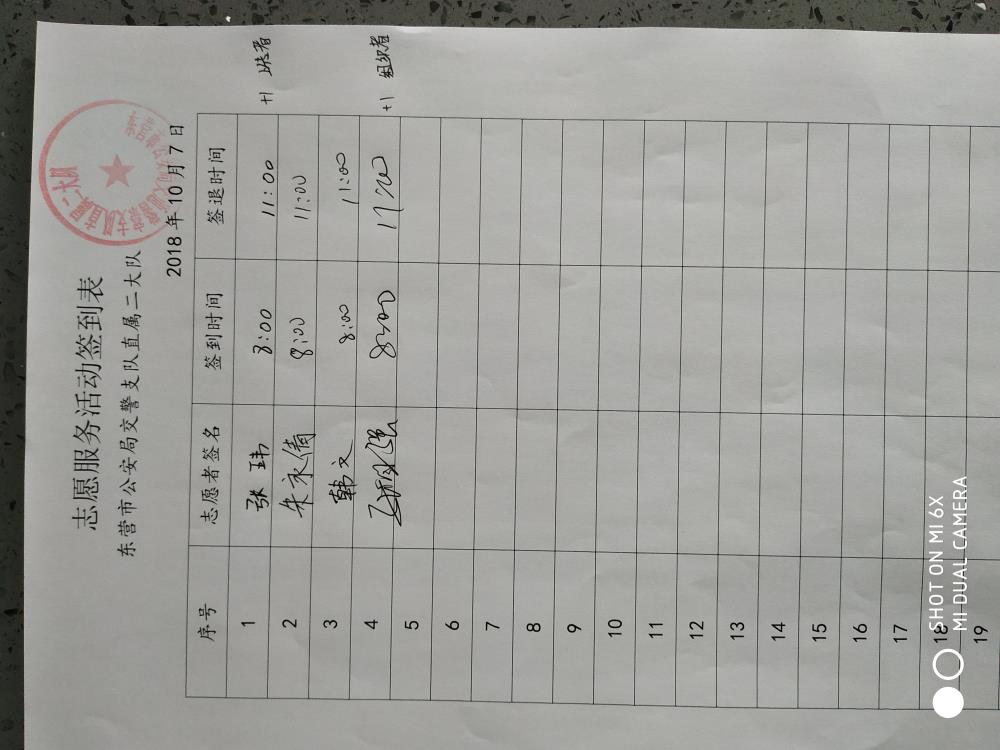 志愿服务活动签到表
东营市公安局交警支队直属二大队
2018 年 10 月 7 日
序号 志愿者签名 签到时间 签退时间
1 张玮 8:00 11:00 +1
2 朱永倩 8:00 11:00
3 韩文 8:00 11:00
4 8:00 11:00 +1 组织者
5
6
7
8
9
10
11
12
13
14
15
16
17
18
19
SHOT ON MI 6X
MI DUAL CAMERA